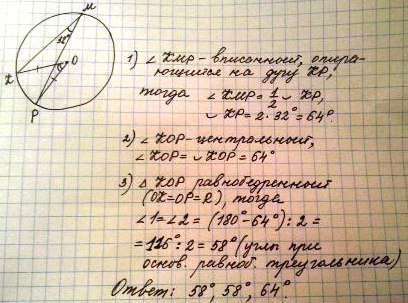 M
32°
O
K
P
1) ∠KMP - вписанный, опира-
ющийся на дугу KP,
тогда ∠KMP = 1/2 ◡ KP,
◡ KP = 2·32° = 64°.
2) ∠KOP - центральный,
∠KOP = ◡ KOP = 64°
3) △ KOP равнобедренный
(OK=OP=R), тогда
∠1=∠2 = (180°-64°) : 2 =
= 116° : 2 = 58° (углы при
основ. равноб. треугольника)
Ответ: 58°, 58°, 64°